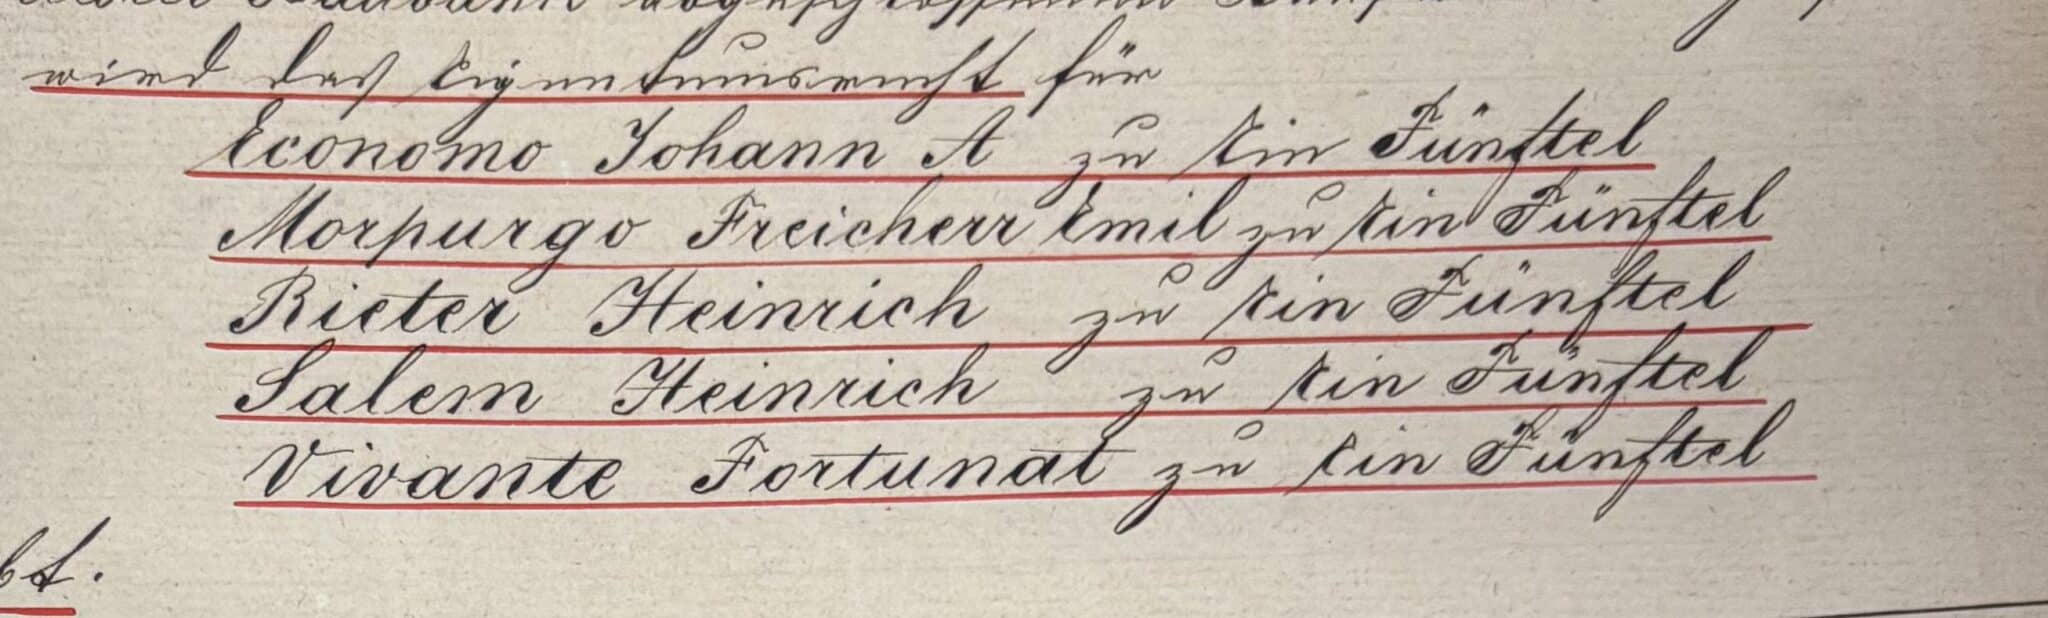 abgeschlossenen
wird das Eigentumsrecht für
Economo Johann A zu Ein Fünftel
Morpurgo Freicherr Emil zu Ein Fünftel
Rieter Heinrich zu Ein Fünftel
Salem Heinrich zu Ein Fünftel
Vivante Fortunat zu Ein Fünftel